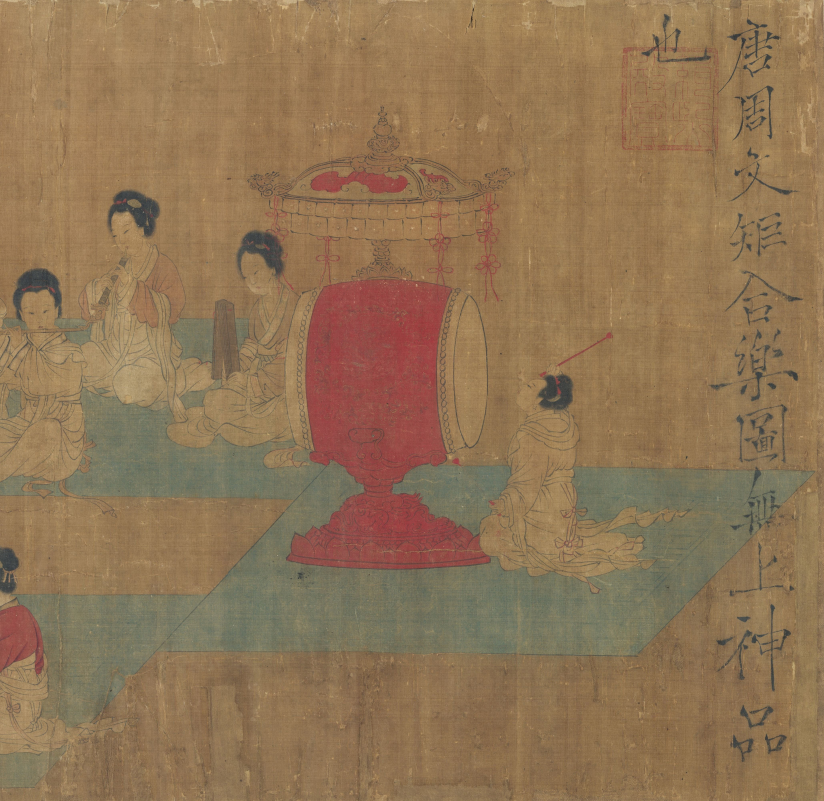 唐周文矩合樂圖無上神品
也